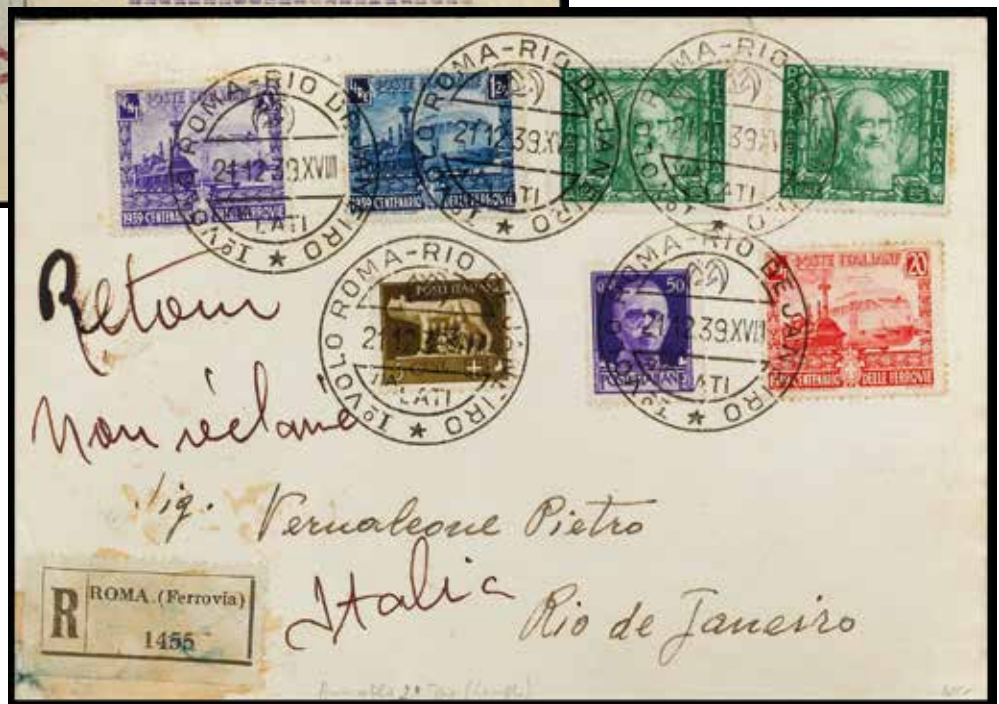 POSTE ITALIANE
1939 CENTENARIO DELLE FERROVIE
1º VOLO ROMA-RIO DE JANEIRO
21.12.39.XVIII
LATI
POSTE ITALIANE
1939 CENTENARIO DELLE FERROVIE
1º VOLO ROMA-RIO DE JANEIRO
21.12.39.XVIII
LATI
POSTA AEREA
ITALIANA
5
1º VOLO ROMA-RIO DE JANEIRO
21.12.39.XVIII
LATI
POSTA AEREA
ITALIANA
5
POSTE ITALIANE
1º VOLO ROMA-RIO DE JANEIRO
21.12.39
LATI
50
POSTE ITALIANE
1º VOLO ROMA-RIO DE JANEIRO
21.12.39.XVIII
LATI
20
POSTE ITALIANE
1939 CENTENARIO DELLE FERROVIE
Retour
Non réclamé
Sig. Vernaleone Pietro
Italia
Rio de Janeiro
R
ROMA.(Ferrovia)
1455